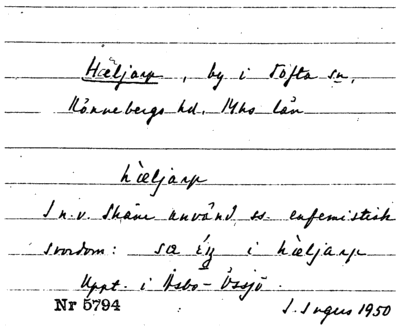 Hæljarp, by i Tofta sn,
Rönnebergs hd. Mhs län
hæljarp
I n.v. Skåne använd ss. eufemistisk
svordom: sæ i hæljarp
Uppt. i Åsbo-Össjö.
Nr 5794 S. Ingers 1950